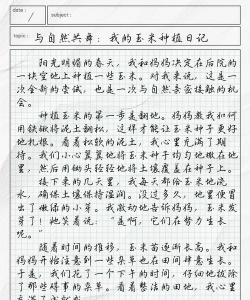 date:
subject:
topic: 与自然共舞：我的玉米种植日记
阳光明媚的春天，我和妈妈决定在后院的
一块空地上种植一些玉米。对我来说，这是一
次全新的尝试，也是一次与自然亲密接触的机
会。
种植玉米的第一步是翻地。妈妈教我如何
用铁锹将泥土翻松，这样才能让玉米种子更好
地扎根。看着松软的泥土，我心里充满了期
待。我们小心翼翼地将玉米种子均匀地撒在地
里，然后用锄头轻轻地将土壤覆盖在种子上。
接下来的几天里，我每天都给玉米地浇
水，确保土壤保持湿润。没过多久，地里便冒
出了嫩绿的小芽。我激动地告诉妈妈，玉米发
芽了！她笑着说：“是啊，它们在努力生长
呢。”
随着时间的推移，玉米苗逐渐长高。我和
妈妈开始注意到一些杂草也在田间肆意生长。
于是，我们花了一个下午的时间，仔细地拔除
了那些碍事的杂草。看着整洁的田地，我心里